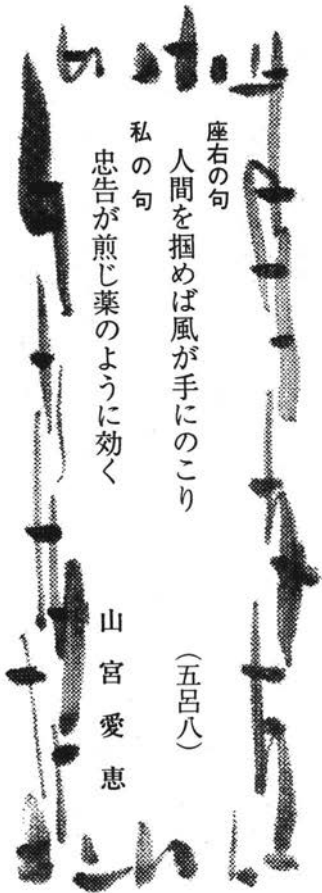 座右の句
人間を掴めば風が手にのこり (五呂八)
私の句
忠告が煎じ薬のように効く
山宮愛恵